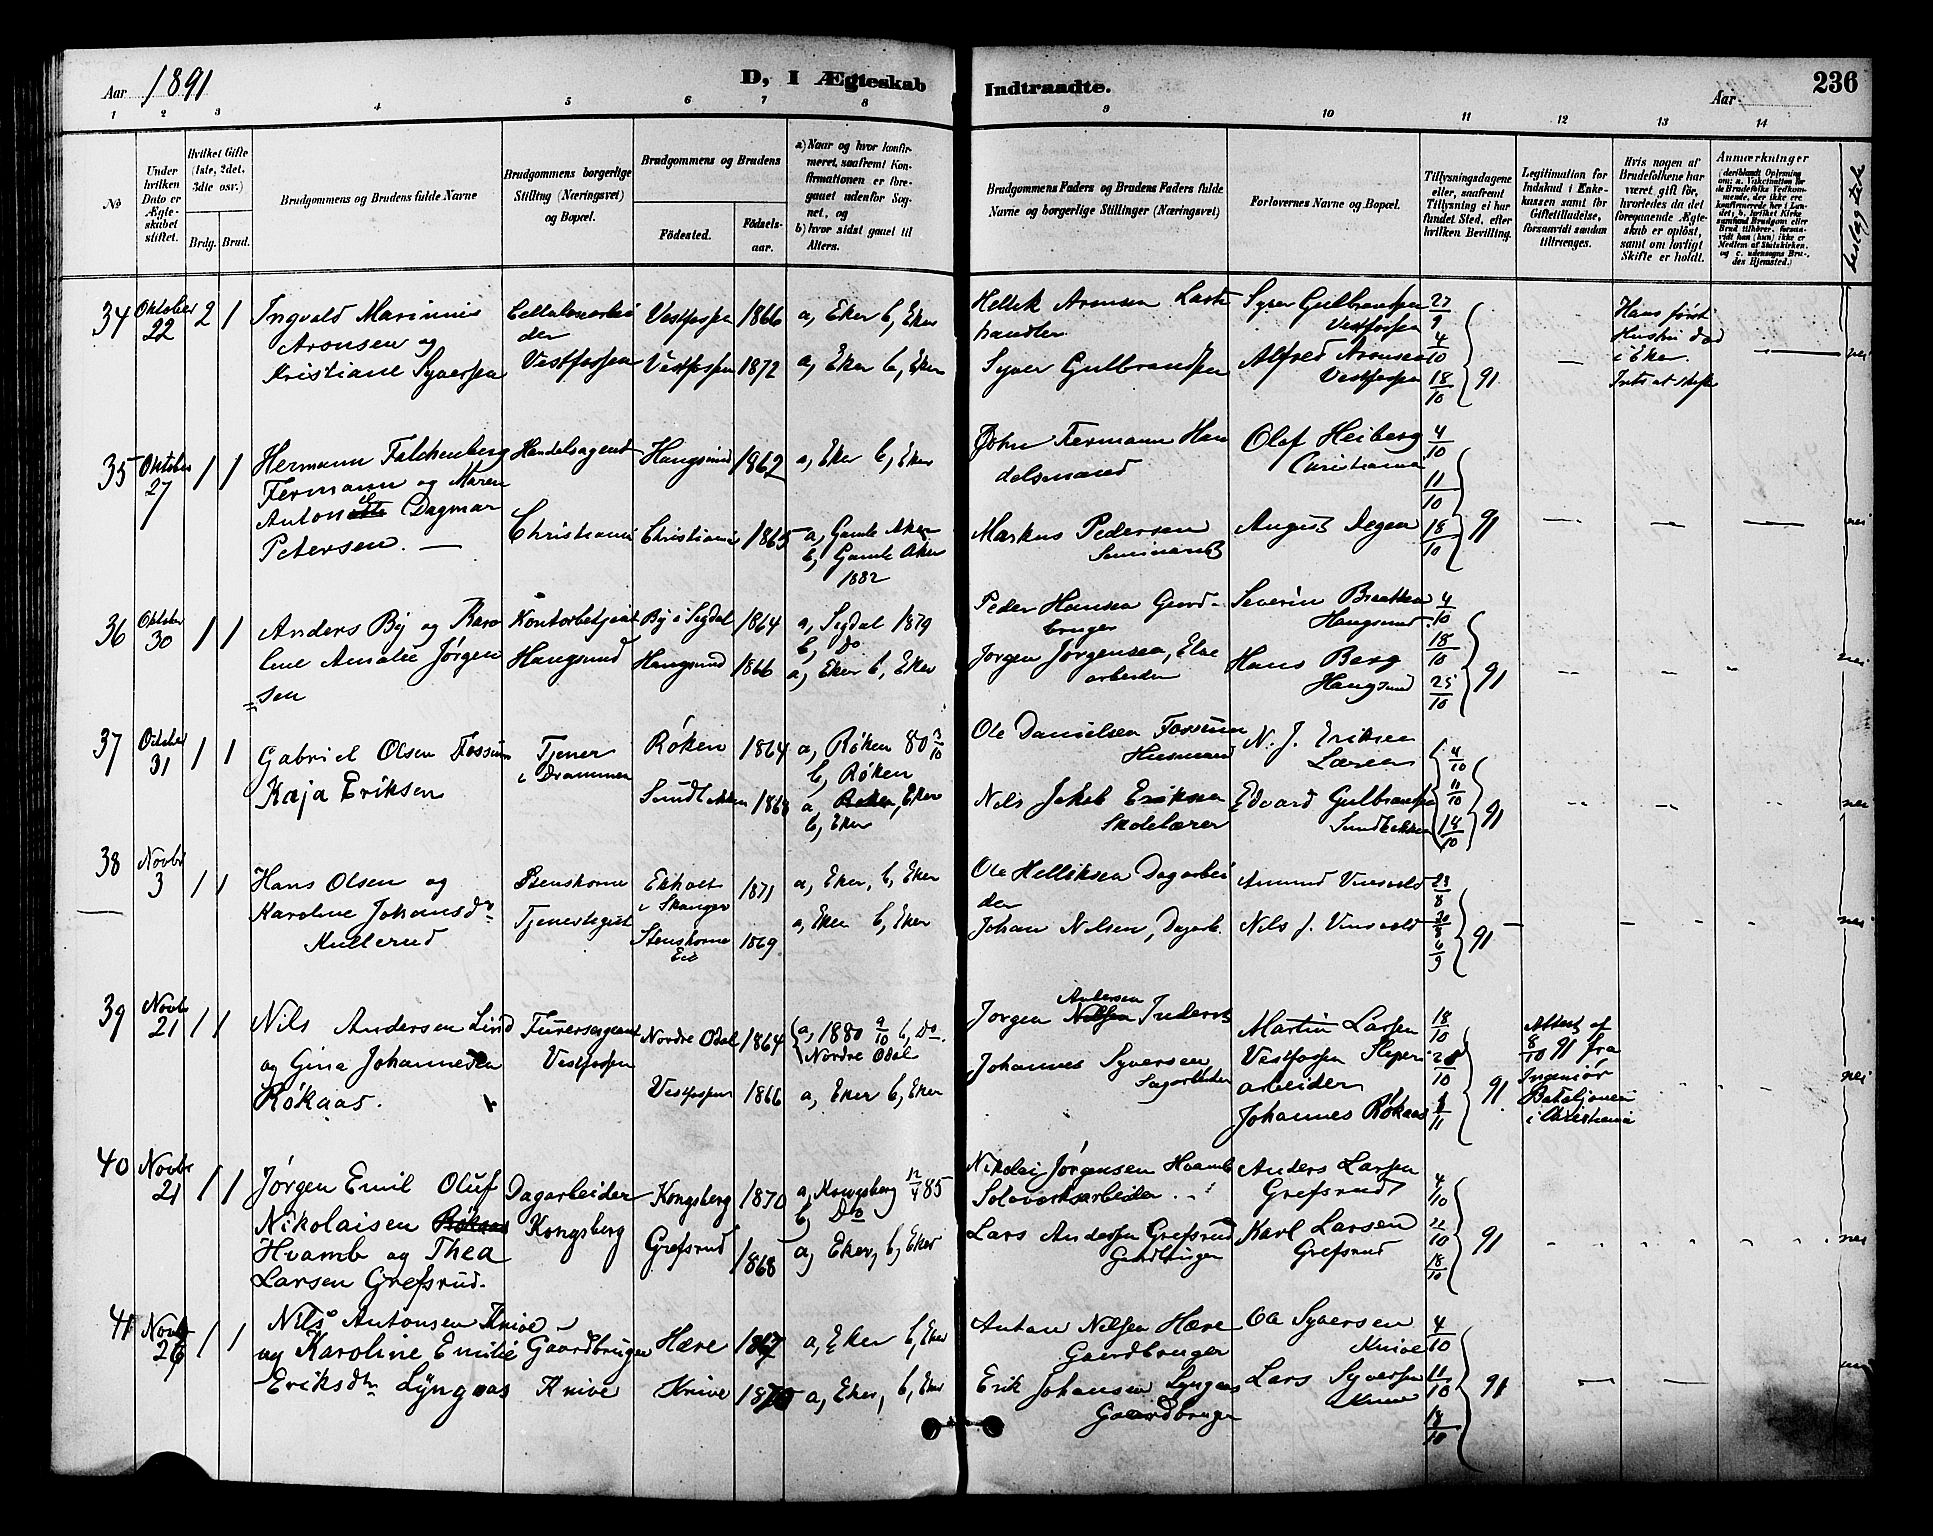 Aar 1891
D, I Ægteskab
Indtraadte.
Aar
236
1 2 3 4 5 6 7 8 9 10 11 12 13 14
No
Under hvilken Dato er Ægteskabet stiftet.
Hvilket Gifte (1ste, 2det, 3die osv.)
Brdg. Brud.
Brudgommens og Brudens fulde Navne
Brudgommens borgerlige Stilling (Næringsvei) og Bopæl.
Brudgommens og Brudens
Fødested.
Fødselsaar.
a) Naar og hvor konfirmeret, saafremt Konfirmationen er foregaaet udenfor Sognet, og
b) hvor sidst gaaet til Alters.
Brudgommens Faders og Brudens Faders fulde Navne og borgerlige Stillinger (Næringsvei)
Forlovernes Navne og Bopæl.
Tillysningsdagene eller, saafremt Tillysning ei har fundet Sted, efter hvilken Bevilling.
Legitimation for Indskud i Enkekassen samt for Giftetilladelse, forsaavidt saadan tiltrænges.
Hvis nogen af Brudefolkene har været gift før, hvorledes da det foregaaende Ægteskab er opløst, samt om lovligt Skifte er holdt.
Anmærkninger
34 Oktober 22 2 1
Ingvald Marinius
Aronsen og
Kristiane Syversen
Vestfossen
Vestfossen 1866 a, Eker b, Eker
Vestfossen 1872 a, Eker b, Eker
Hellik Aronsen
handler
Syver Gulbrandsen
Syver Gulbransen
Vestfossen
Alfred Aronsen
Vestfossen
27/9
4/10
18/10 91
Hans først
Hustru død
i Eker.
nei
35 Oktober 27 1 1
Hermann Falchenberg
Fermann og Maren
Antonette Dagmar
Petersen.
Handelsagent
Christiania
Haugsund 1862 a, Eker b, Eker
Christiania 1865 a, Gamle Aker
b, Gamle Aker
1882
John Fermann Han
delsmand
Markus Pedersen
Olaf Heiberg
Christiania
August Degen
4/10
11/10
18/10 91
nei
36 Oktober 30 1 1
Anders By og Karo
line Amalie Jørgen
sen
Kontorbetjent
Haugsund
By i Sigdal 1864 a, Sigdal 1879
b, Do
Haugsund 1866 a, Eker b, Eker
Peder Hansen Gaard-
bruger
Jørgen Jørgensen, Elve
arbeider
Severin Braathen
Haugsund
Hans Berg
Haugsund
4/10
18/10
25/10 91
nei
37 31 1 1
Gabriel Olsen Fossum
Kaja Eriksen
Tjener
i Drammen
Røken 1864 a, Røken 80 3/10
b, Røken
1868 a Røken, Eker
b, Eker
Ole Danielsen Fossum
Husmand
Nils Jakob Eriksen
Skolelærer
N. J. Eriksen
Lærer
Edvard Gulbransen
Sundbakken
4/10
11/10
18/10 91
nei
38 Novbr 3 1 1
Hans Olsen og
Karoline Johansdr
Kullerud
Stenshorne
Ekholt
i Skauger 1871 a, Eker, b, Eker
Stenshorne
Eie 1869 a, Eker b, Eker
Ole Helliksen Dagarbei
der
Johan Nilsen, Dagarb.
Amund Vinsvold
Nils J. Vinsvold
23/8
30/8
6/9 91
nei
39 Novbr 21 1 1
Nils Andersen Lind
og Gina Johannesen
Røkaas.
Furersergeant
Vestfossen
Nordre Odal 1864 a, 1880 9/10 b, Do.
Nordre Odal
Vestfossen 1866 a, Eker b, Eker
Andersen
Jørgen Nilsen Inderst
Johannes Syversen
Sagarbeider
Martin Larsen
Vestfossen Sliperi
arbeider
Johannes Røkaas
18/10
91
Attest af
8/10 91 fra
Ingeniør
Bataljonen
i Christiania
nei
40 Novbr 21 1 1
Jørgen Emil Oluf
Nikolaisen Røkaas
Hvamb og Thea
Larsen Grefsrud.
Dagarbeider
Kongsberg
Kongsberg 1870 a, Kongsberg 12/4 85
b, Do
Grefsrud 1868 a, Eker, b, Eker
Nikolai Jørgensen Hvamb
Sølvverksarbeider
Lars Andersen Grefsrud
Gaardbruger
Anders Larsen
Grefsrud
Karl Larsen
Grefsrud
4/10
11/10
18/10 91
nei
41 Novbr 26 1 1
Nils Antonsen Knive
og Karoline Emilie
Eriksdtr Lyngaas
Gaardbruger
Knive
Hære 1867 a, Eker b, Eker
Knive 1870 a, Eker, b, Eker
Anton Nilsen Hære
Gaardbruger
Erik Johansen Lyngaas
Gaardbruger
Ole Syversen
Knive
Lars Syversen
Knive
4/10
11/10
18/10 91